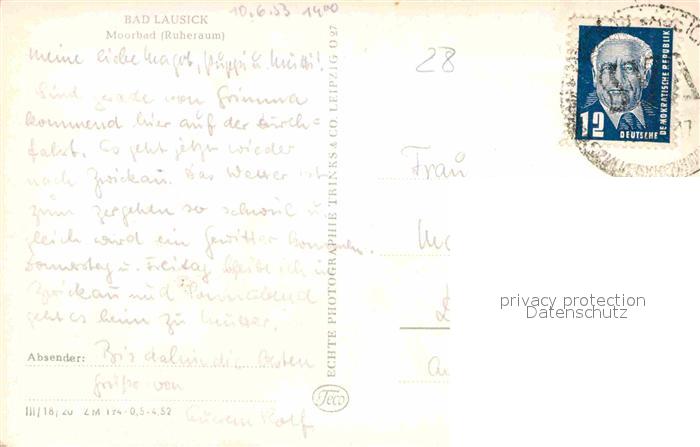 BAD LAUSICK
Moorbad (Ruheraum)
10.6.53 1900
Meine liebe Magot, Puppi u. Mutti!
Sind gerade von Grimma
kommend hier auf der Durch=
fahrt. Es geht jetzt wieder
nach Zwickau. Das Wetter ist
zum zergehen so schwül u.
gleich wird ein Gewitter kommen.
Donnerstag u. Freitag bleibe ich in
Zwickau und Sonnabend
geht es heim zu Mutter.
Absender: Bis dahin die besten
Grüße von
Eurem Rolf
III/18/20 ZM 194-0,5-4,52
ECHTE PHOTOGRAPHIE TRINKS & CO. LEIPZIG O 27
Teco
28
12
DEUTSCHE
DEMOKRATISCHE REPUBLIK
Frau
privacy protection
Datenschutz